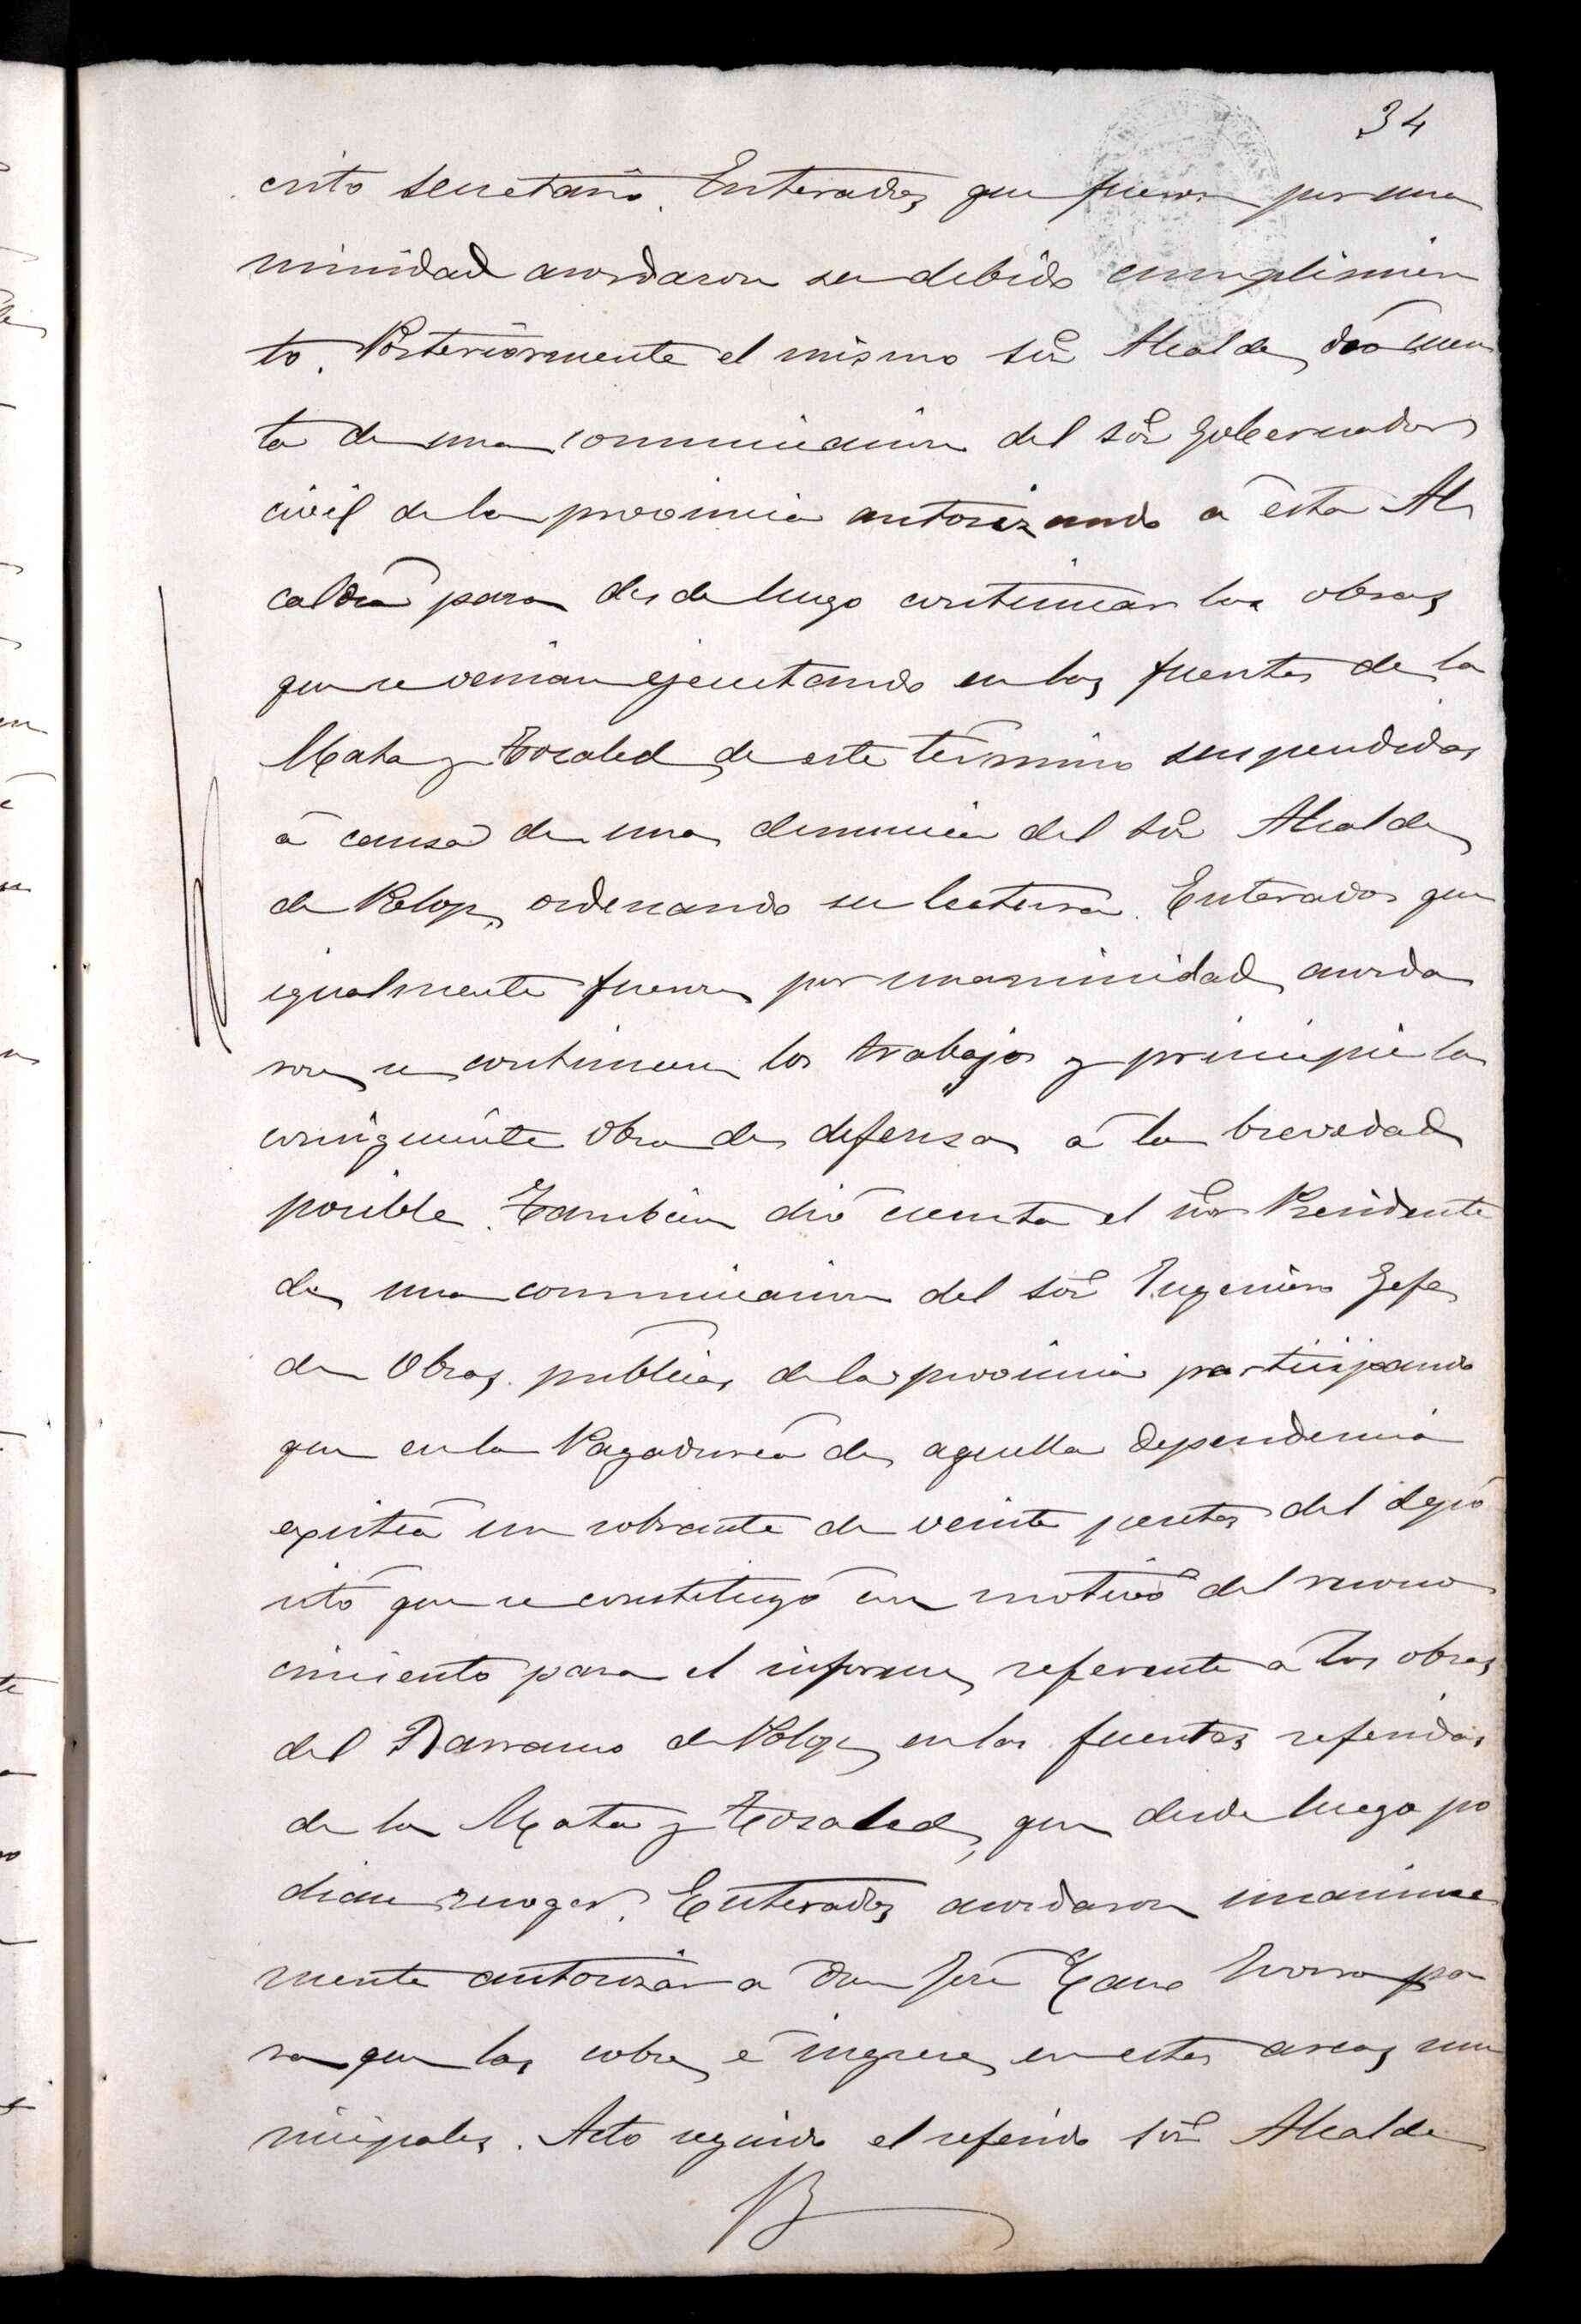 34
crito secretario. Enterados que fueron por una
nimidad acordaron su debido cumplimien
to. Posteriormente el mismo Sor Alcalde, dió cuen
ta de una comunicacion del Sor Gobernador
civil de la provincia autorizando á esta Al
caldia para desde luego continuar las obras
que se venian ejecutando en las fuentes de la
Mata y Tosaled de este término suspendidas
á causa de una denuncia del Sor Alcalde
de Polop, ordenando su lectura. Enterados que
igualmente fueron por unanimidad acorda
ron se continuen los trabajos y principie la
consiguiente obra de defensa á la brevedad
posible. Tambien dió cuenta el Sor Presidente
de una comunicacion del Sor Ingeniero Gefe
de Obras publicas de la provincia participando
que en la Pagaduria de aquella dependencia
existia un sobrante de veinte pesetas del depó
sito que se constituyó con motivo del recono
cimiento para el informe referente á las obras
del Barranco de Polop, en las fuentes referidas
de la Mata y Tosaled, que desde luego po
dian recoger. Enterados acordaron unanime
mente autorizar a Don José Cano pa
ra que las cobre é ingrese en estas arcas mu
nicipales. Acto seguido el referido Sor Alcalde